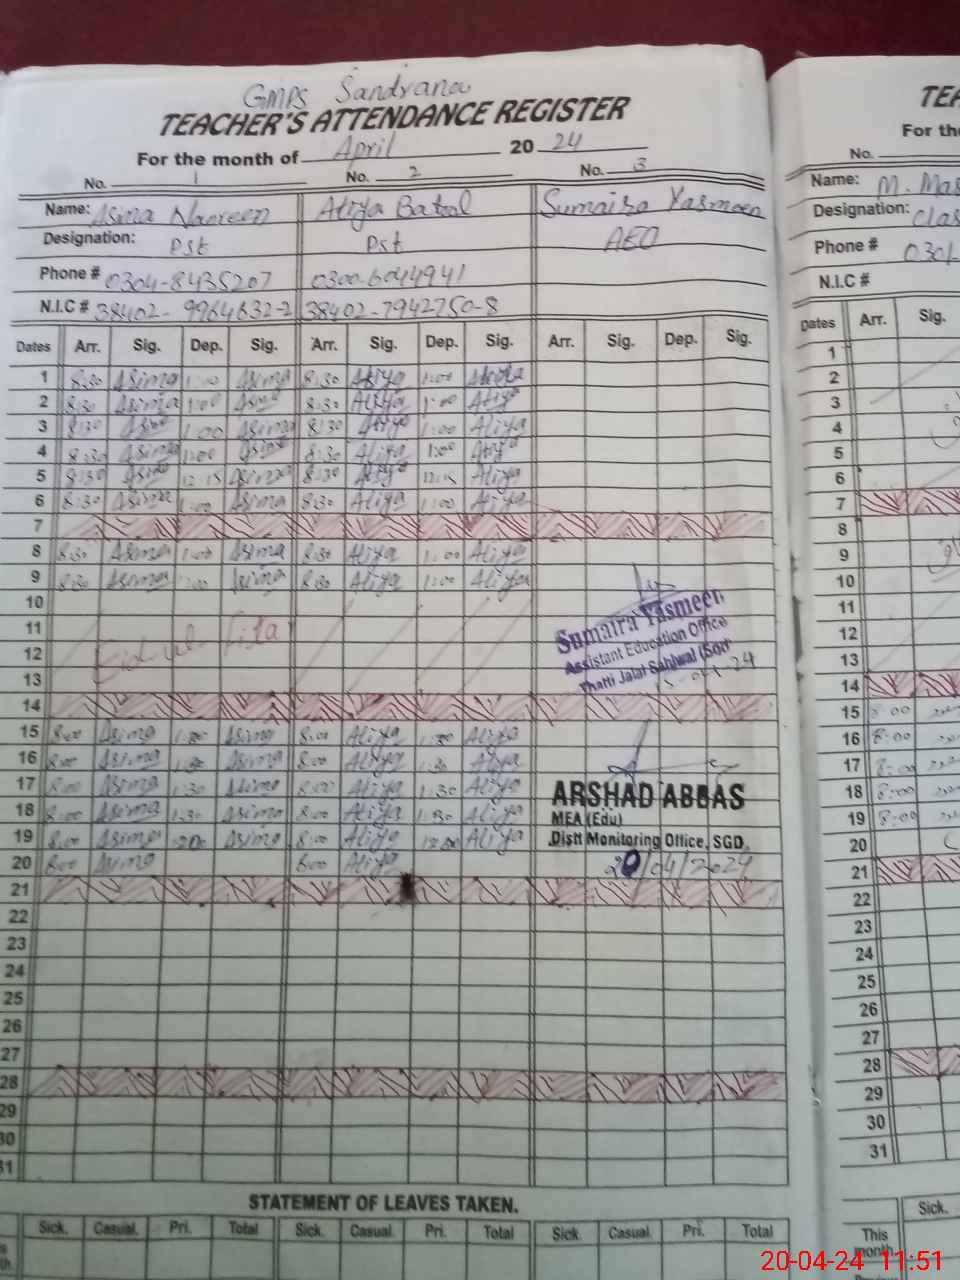 GMPS Sandrana
TEACHER'S ATTENDANCE REGISTER
For the month of April 2024
No. 1 No. 2 No. 3
Name: Asima Nasreen Atiya Batool Sumaira Yasmeen
Designation: Pst Pst AEO
Phone # 0304-8435207 0300-6044941
N.I.C # 38402-9964632-2 38402-7942750-8
Dates Arr. Sig. Dep. Sig. Arr. Sig. Dep. Sig. Arr. Sig. Dep. Sig.
1 8:30 Asima 1:00 Asima 8:30 Atiya 1:00 Atiya
2 8:30 Asima 1:00 Asima 8:30 Atiya 1:00 Atiya
3 8:30 Asima 1:00 Asima 8:30 Atiya 1:00 Atiya
4 8:30 Asima 1:00 Asima 8:30 Atiya 1:00 Atiya
5 8:30 Asima 12:15 Asima 8:30 Atiya 12:15 Atiya
6 8:30 Asima 1:00 Asima 8:30 Atiya 1:00 Atiya
7
8 8:30 Asima 1:00 Asima 8:30 Atiya 1:00 Atiya
9 8:30 Asima 1:00 Asima 8:30 Atiya 1:00 Atiya
10
11
Eid-ul-Fitar
12
13
Sumaira Yasmeen
Assistant Education Office
Thatti Jalal Sahiwal (Sgd)
14
15 8:00 Asima 1:30 Asima 8:00 Atiya 1:30 Atiya
16 8:00 Asima 1:30 Asima 8:00 Atiya 1:30 Atiya
17 8:00 Asima 1:30 Asima 8:00 Atiya 1:30 Atiya
18 8:00 Asima 1:30 Asima 8:00 Atiya 1:30 Atiya
19 8:00 Asima 12:00 Asima 8:00 Atiya 12:00 Atiya
20 8:00 Asima 8:00 Atiya
ARSHAD ABBAS
MEA (Edu)
Distt Monitoring Office, SGD.
20/04/2024
21
22
23
24
25
26
27
28
29
30
31
STATEMENT OF LEAVES TAKEN.
Sick. Casual. Pri. Total Sick. Casual. Pri. Total Sick. Casual. Pri. Total
For the
No.
Name: M.
Designation:
Phone #
N.I.C #
Dates Arr. Sig.
1
2
3
4
5
6
7
8
9
10
11
12
13
14
15 8:00
16 8:00
17 8:00
18 8:00
19 8:00
20
21
22
23
24
25
26
27
28
29
30
31
Sick.
This
month.
20-04-24 11:51